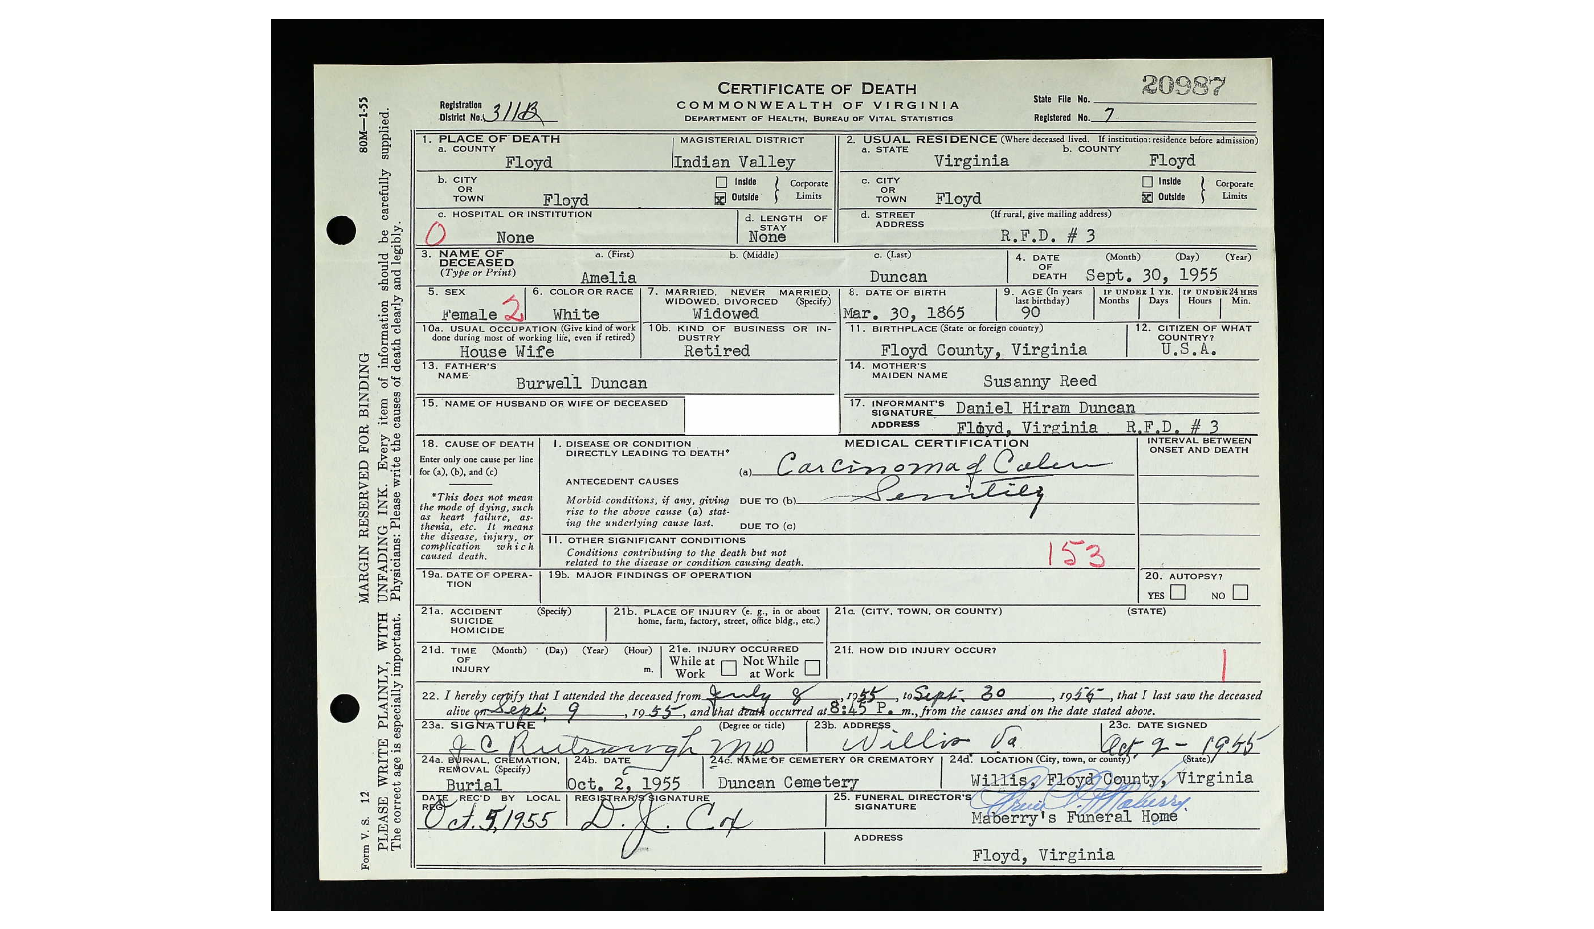 CERTIFICATE OF DEATH
COMMONWEALTH OF VIRGINIA
DEPARTMENT OF HEALTH, BUREAU OF VITAL STATISTICS
Registration District No. 311B
State File No. 20987
Registered No. 7
80M—1-55
MARGIN RESERVED FOR BINDING
Form V. S. 12
PLEASE WRITE PLAINLY, WITH UNFADING INK. Every item of information should be carefully supplied.
The correct age is especially important. Physicians: Please write the causes of death clearly and legibly.
1. PLACE OF DEATH
a. COUNTY Floyd
MAGISTERIAL DISTRICT Indian Valley
2. USUAL RESIDENCE (Where deceased lived. If institution: residence before admission)
a. STATE Virginia
b. COUNTY Floyd
b. CITY OR TOWN Floyd
Inside Outside Corporate Limits
c. CITY OR TOWN Floyd
Inside Outside Corporate Limits
c. HOSPITAL OR INSTITUTION
0 None
d. LENGTH OF STAY None
d. STREET ADDRESS (If rural, give mailing address)
R.F.D. # 3
3. NAME OF DECEASED (Type or Print)
a. (First) Amelia
b. (Middle)
c. (Last) Duncan
4. DATE OF DEATH (Month) (Day) (Year)
Sept. 30, 1955
5. SEX Female 2
6. COLOR OR RACE White
7. MARRIED, NEVER MARRIED, WIDOWED, DIVORCED (Specify)
Widowed
8. DATE OF BIRTH Mar. 30, 1865
9. AGE (In years last birthday) 90
IF UNDER 1 YR. Months Days
IF UNDER 24 HRS Hours Min.
10a. USUAL OCCUPATION (Give kind of work done during most of working life, even if retired)
House Wife
10b. KIND OF BUSINESS OR INDUSTRY
Retired
11. BIRTHPLACE (State or foreign country)
Floyd County, Virginia
12. CITIZEN OF WHAT COUNTRY?
U.S.A.
13. FATHER'S NAME Burwell Duncan
14. MOTHER'S MAIDEN NAME Susanny Reed
15. NAME OF HUSBAND OR WIFE OF DECEASED
17. INFORMANT'S SIGNATURE Daniel Hiram Duncan
ADDRESS Floyd, Virginia R.F.D. # 3
18. CAUSE OF DEATH
Enter only one cause per line for (a), (b), and (c)
*This does not mean the mode of dying, such as heart failure, asthenia, etc. It means the disease, injury, or complication which caused death.
MEDICAL CERTIFICATION
INTERVAL BETWEEN ONSET AND DEATH
I. DISEASE OR CONDITION DIRECTLY LEADING TO DEATH*
(a) Carcinoma of Colon
ANTECEDENT CAUSES
Morbid conditions, if any, giving rise to the above cause (a) stating the underlying cause last.
DUE TO (b) Senility
DUE TO (c)
II. OTHER SIGNIFICANT CONDITIONS
Conditions contributing to the death but not related to the disease or condition causing death.
153
19a. DATE OF OPERATION
19b. MAJOR FINDINGS OF OPERATION
20. AUTOPSY?
YES NO
21a. ACCIDENT SUICIDE HOMICIDE (Specify)
21b. PLACE OF INJURY (e. g., in or about home, farm, factory, street, office bldg., etc.)
21c. (CITY, TOWN, OR COUNTY) (STATE)
21d. TIME OF INJURY (Month) (Day) (Year) (Hour) m.
21e. INJURY OCCURRED
While at Work Not While at Work
21f. HOW DID INJURY OCCUR?
1
22. I hereby certify that I attended the deceased from July 8, 1955, to Sept. 30, 1955, that I last saw the deceased
alive on Sept. 9, 1955, and that death occurred at 8:45 P. m., from the causes and on the date stated above.
23a. SIGNATURE (Degree or title)
J C MD
23b. ADDRESS Willis Va
23c. DATE SIGNED Oct 2 - 1955
24a. BURIAL, CREMATION, REMOVAL (Specify)
Burial
24b. DATE Oct. 2, 1955
24c. NAME OF CEMETERY OR CREMATORY
Duncan Cemetery
24d. LOCATION (City, town, or county) (State)
Willis, Floyd County, Virginia
DATE REC'D BY LOCAL REG. Oct. 5, 1955
REGISTRAR'S SIGNATURE D. J. Cox
25. FUNERAL DIRECTOR'S SIGNATURE
Maberry's Funeral Home
ADDRESS
Floyd, Virginia